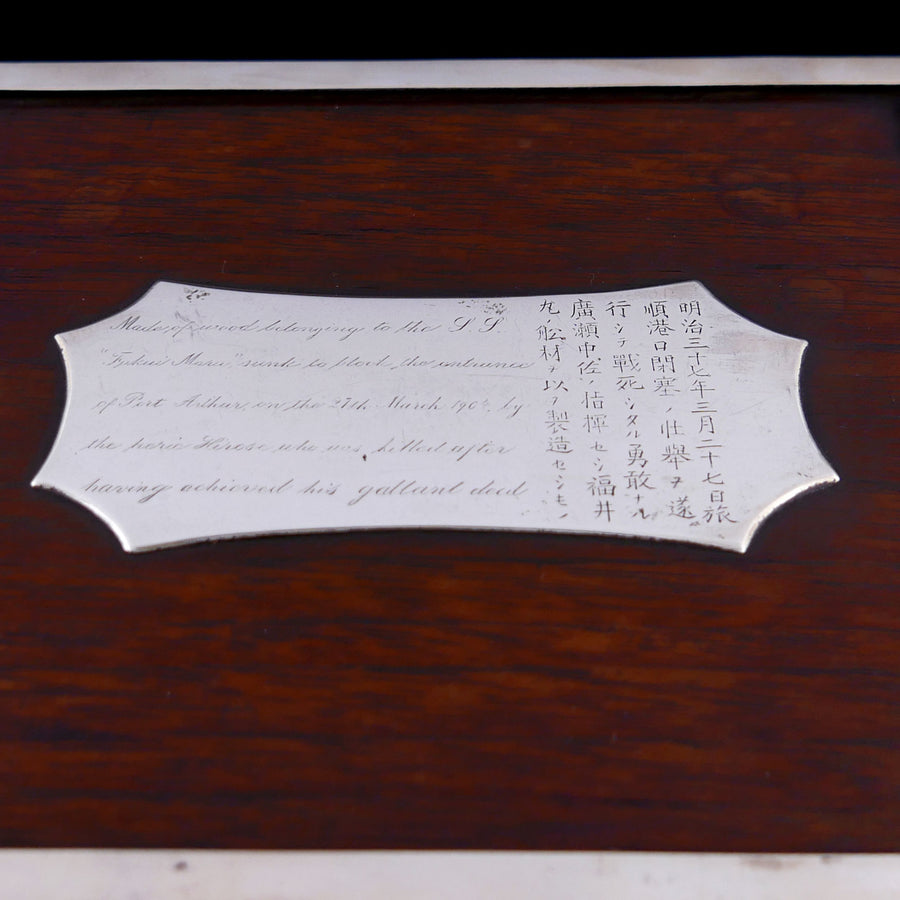 Made of wood belonging to the S.S.
"Fukui Maru" sunk to block the entrance
of Port Arthur, on the 27th March 1904, by
the heroic Hirose who was killed after
having achieved his gallant deed
明治三十七年三月二十七日旅
順港口閉塞ノ壮舉ヲ遂
行シテ戰死シタル勇敢ナル
廣瀬中佐ノ指揮セシ福井
丸ノ舩材ヲ以テ製造セシモノ